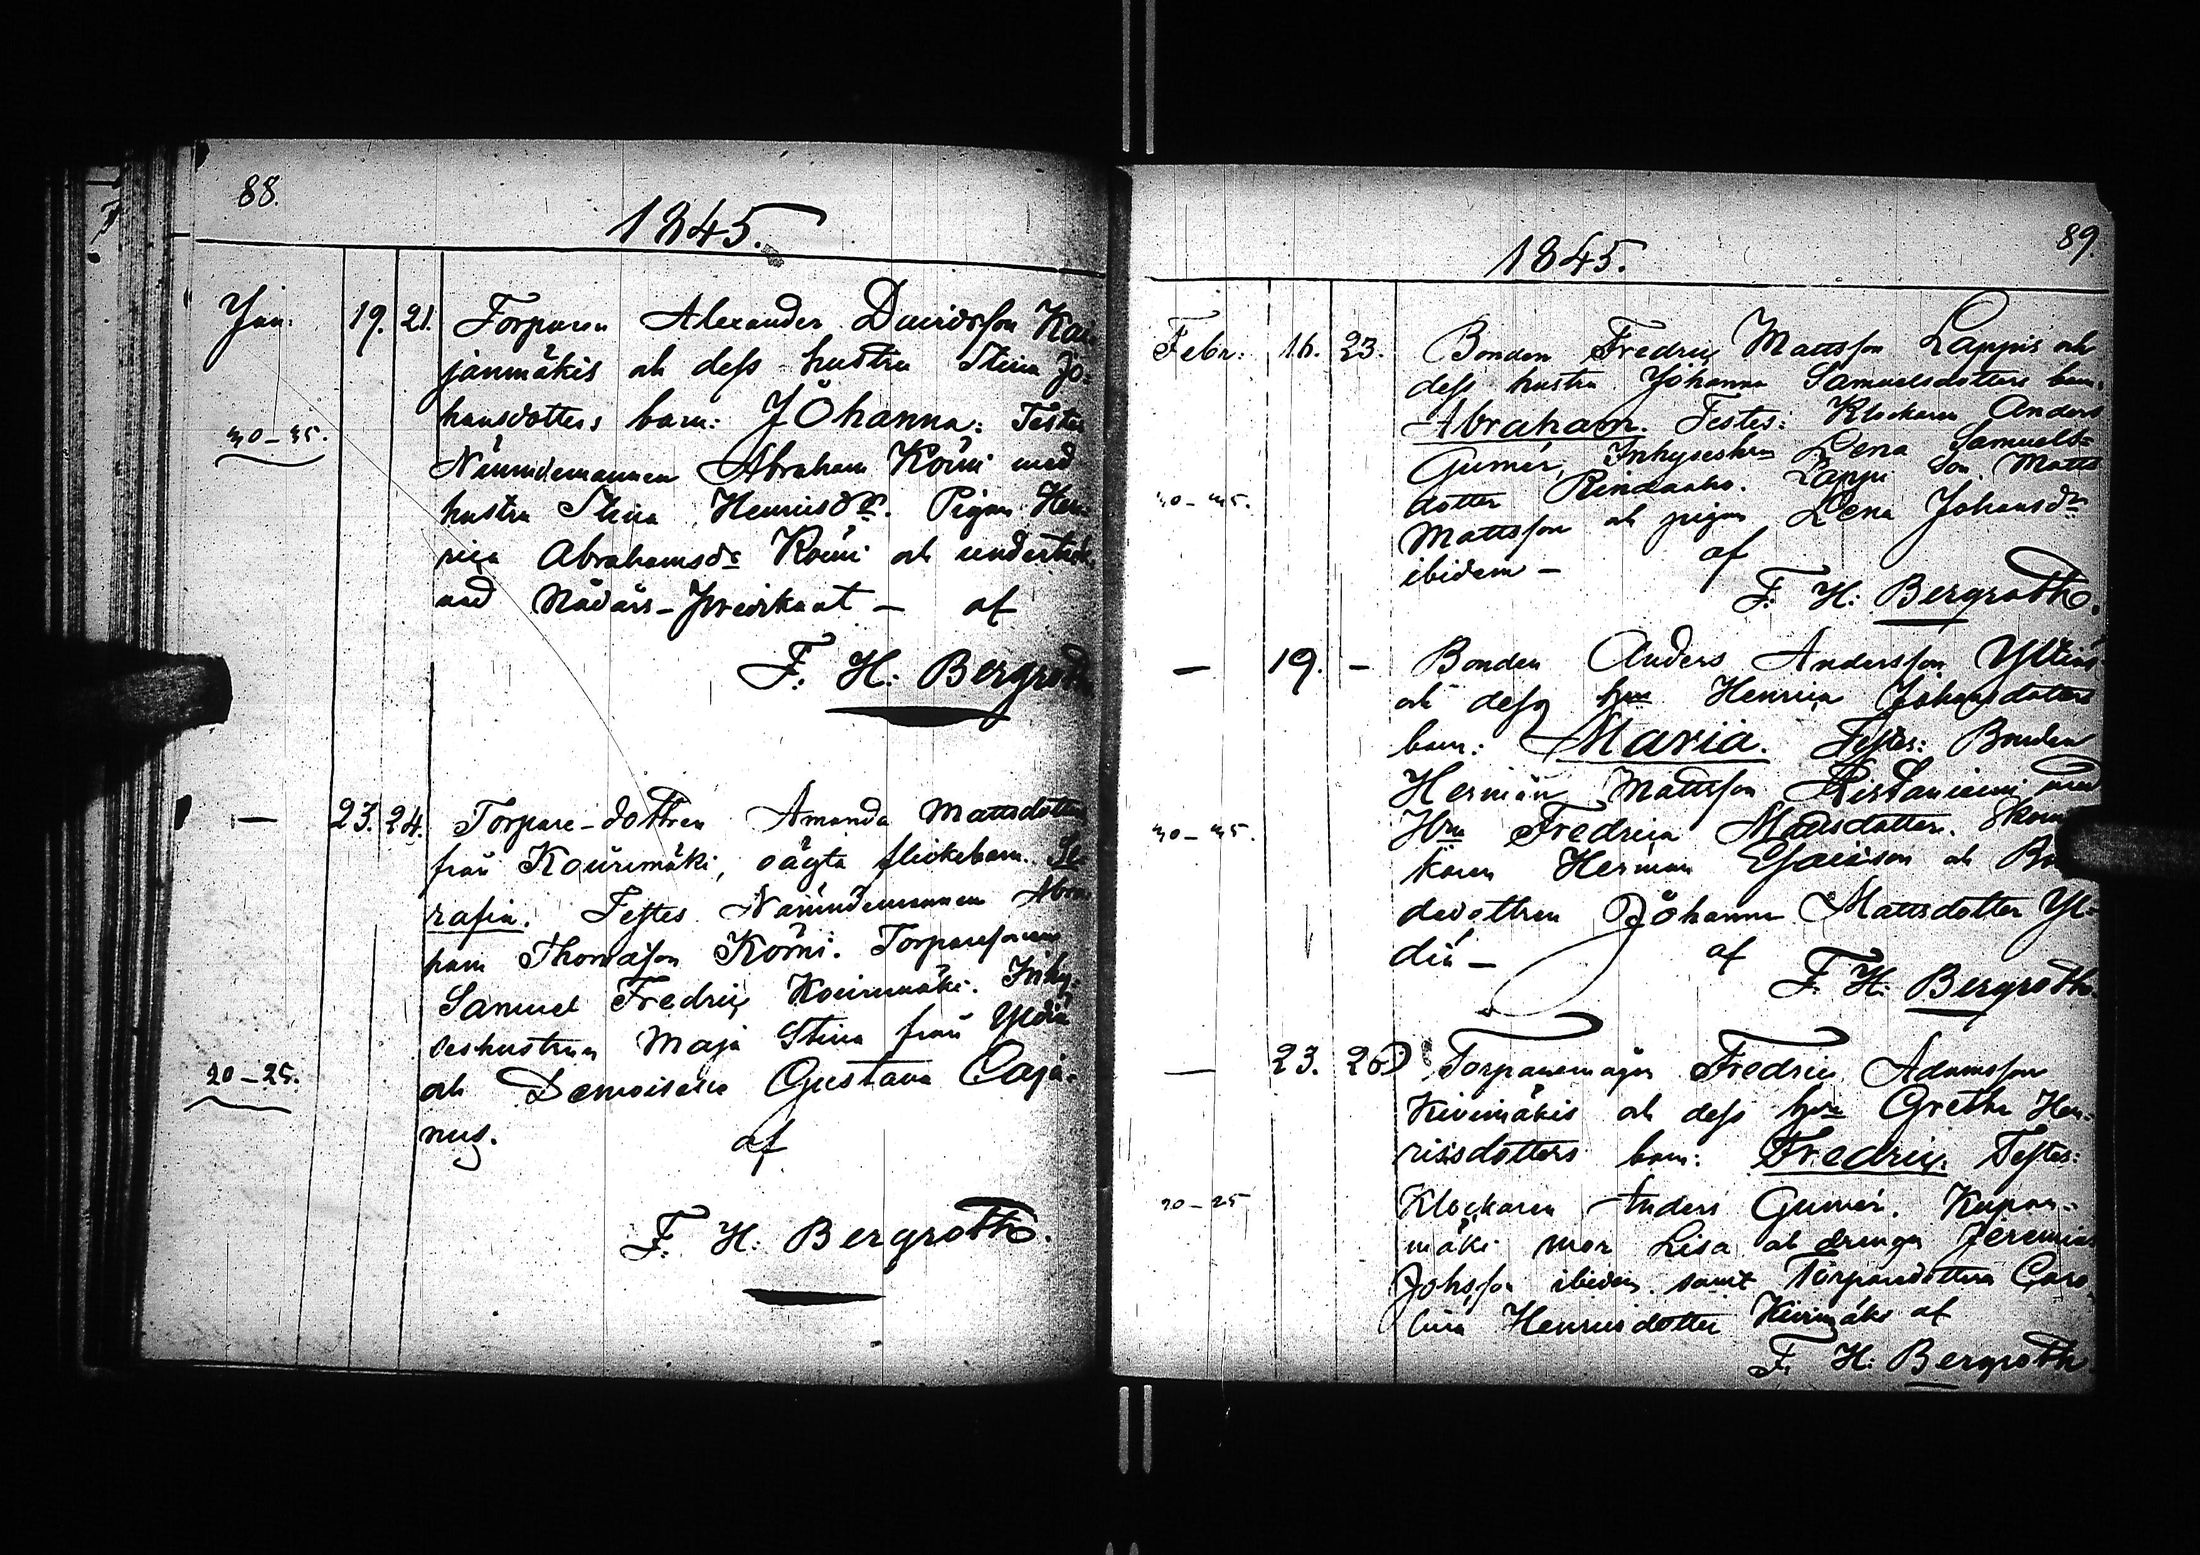 88.
1845.
Jan. 19. 21. Torparen Alexander Davidsson Kai-
janmäkis och dess hustru Stina Jo-
hansdotters barn: Johanna: Testes
30–35. Nämndemannen Abraham Körni med
hustru Stina Henricsdr. Pigan Hen-
rica Abrahamsdr Körni och underteck-
nad Nådårs-Predikant – af
F. H: Bergroth
— 23. 24. Torpare-dottren Amanda Mattsdotter
från Kourimäki, oägta flickebarn. Se-
rafia. Testes Nämndemannen Abra-
ham Thomasson Körni. Torparesonen
Samuel Fredric Kourimäki. Inhy-
seshustrun Maja Stina från Yldiä
20–25. och Demoiselle Gustava Caja-
nus. af
F. H: Bergroth.
89.
1845.
Febr: 16. 23. Bonden Fredric Mattsson Lappis och
dess hustru Johanna Samuelsdotters barn.
Abraham. Testes: Klockaren Anders
Gumér, Inhyseshn Lena Samuels-
30–35. dotter Rindaaho. Lappi Son Matts
Mattsson och pigan Lena Johansdr
ibidem – af
F. H: Bergroth.
— 19. – Bonden Anders Andersson Yldiäs
och dess hu Henrica Johansdotters
barn: Maria. Testes: Bonden
Herman Mattsson Ristaniemi med
30–35. Hru Fredrica Mattsdotter. Skoma-
karen Herman Esaiasson och Bon-
dedottren Johanna Mattsdotter Yl-
diä – af
F. H: Bergroth.
— 23. 26. Torparemågen Fredric Adamsson
Kivimäkis och dess hru Gretha Hen-
ricsdotters barn: Fredric. Testes:
20–25 Klockaren Anders Gumér. Kupar-
mäki mor Lisa och drengen Jeremias
Johsson ibidem samt Torparedottern Caro-
lina Henricsdotter Kivimäki af
F. H: Bergroth